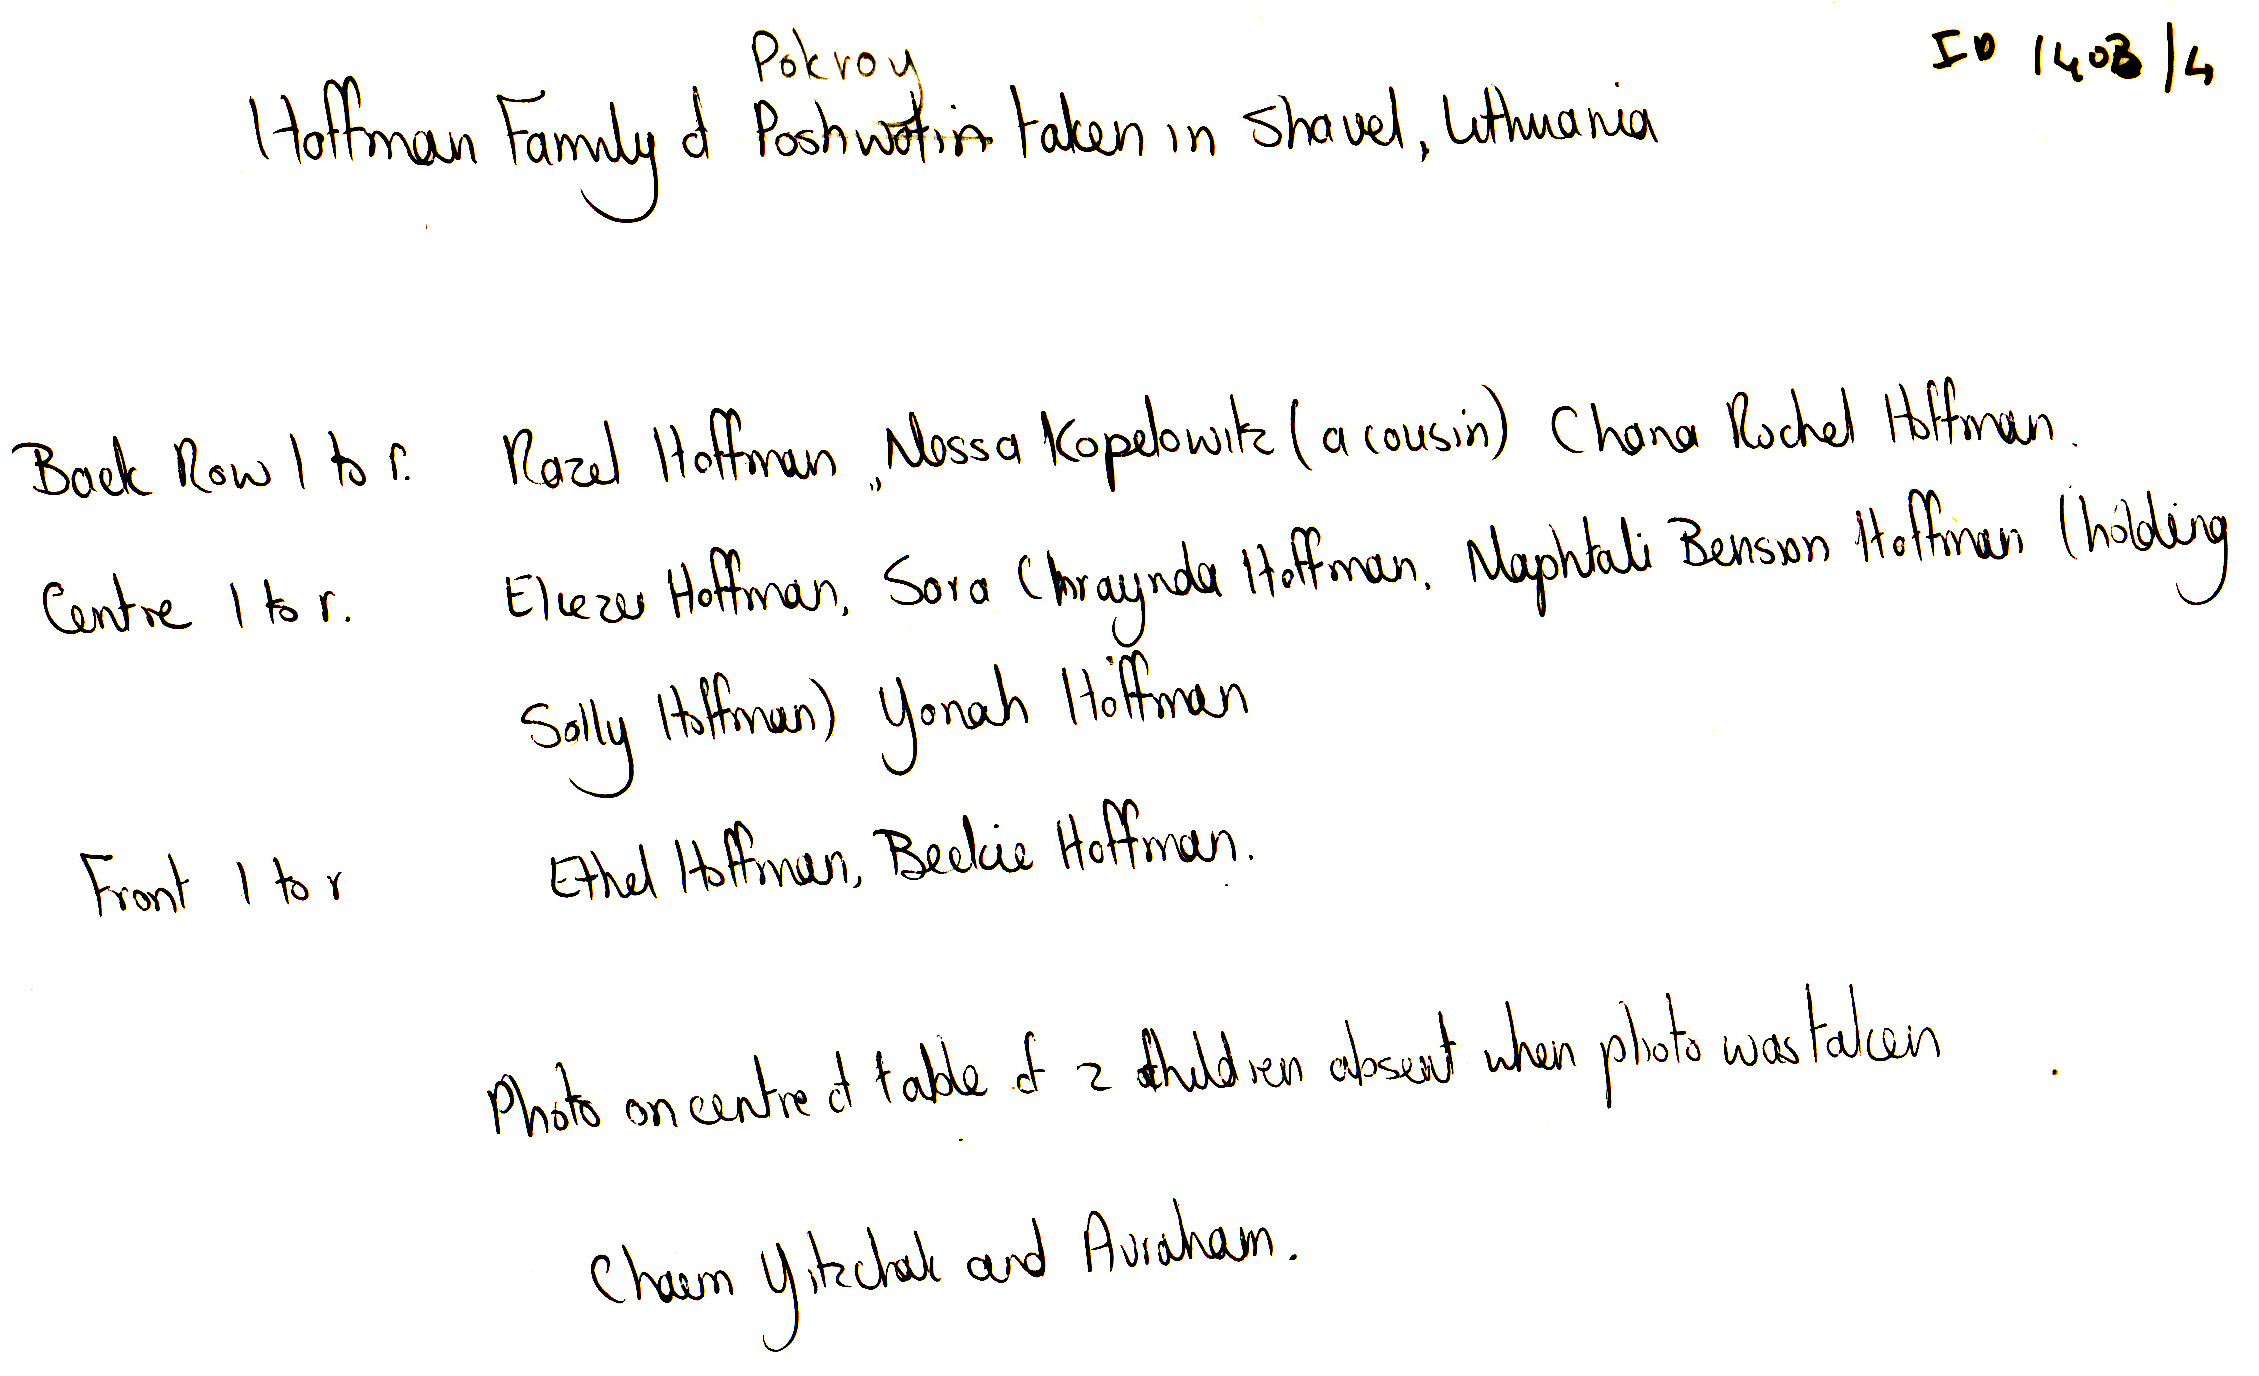 ID 1403/4
Pokroy
Hoffman Family of taken in Shavel, Lithuania
Back Row l to r. Razel Hoffman, Nossa Kopelowitz (a cousin) Chana Rochel Hoffman.
Centre l to r. Eliezer Hoffman, Sora Chraynda Hoffman, Naphtali Benson Hoffman (holding
Solly Hoffman) Yonah Hoffman
Front l to r Ethel Hoffman, Beckie Hoffman.
Photo on centre of table of 2 children absent when photo was taken
Chaem Yitzchak and Avraham.